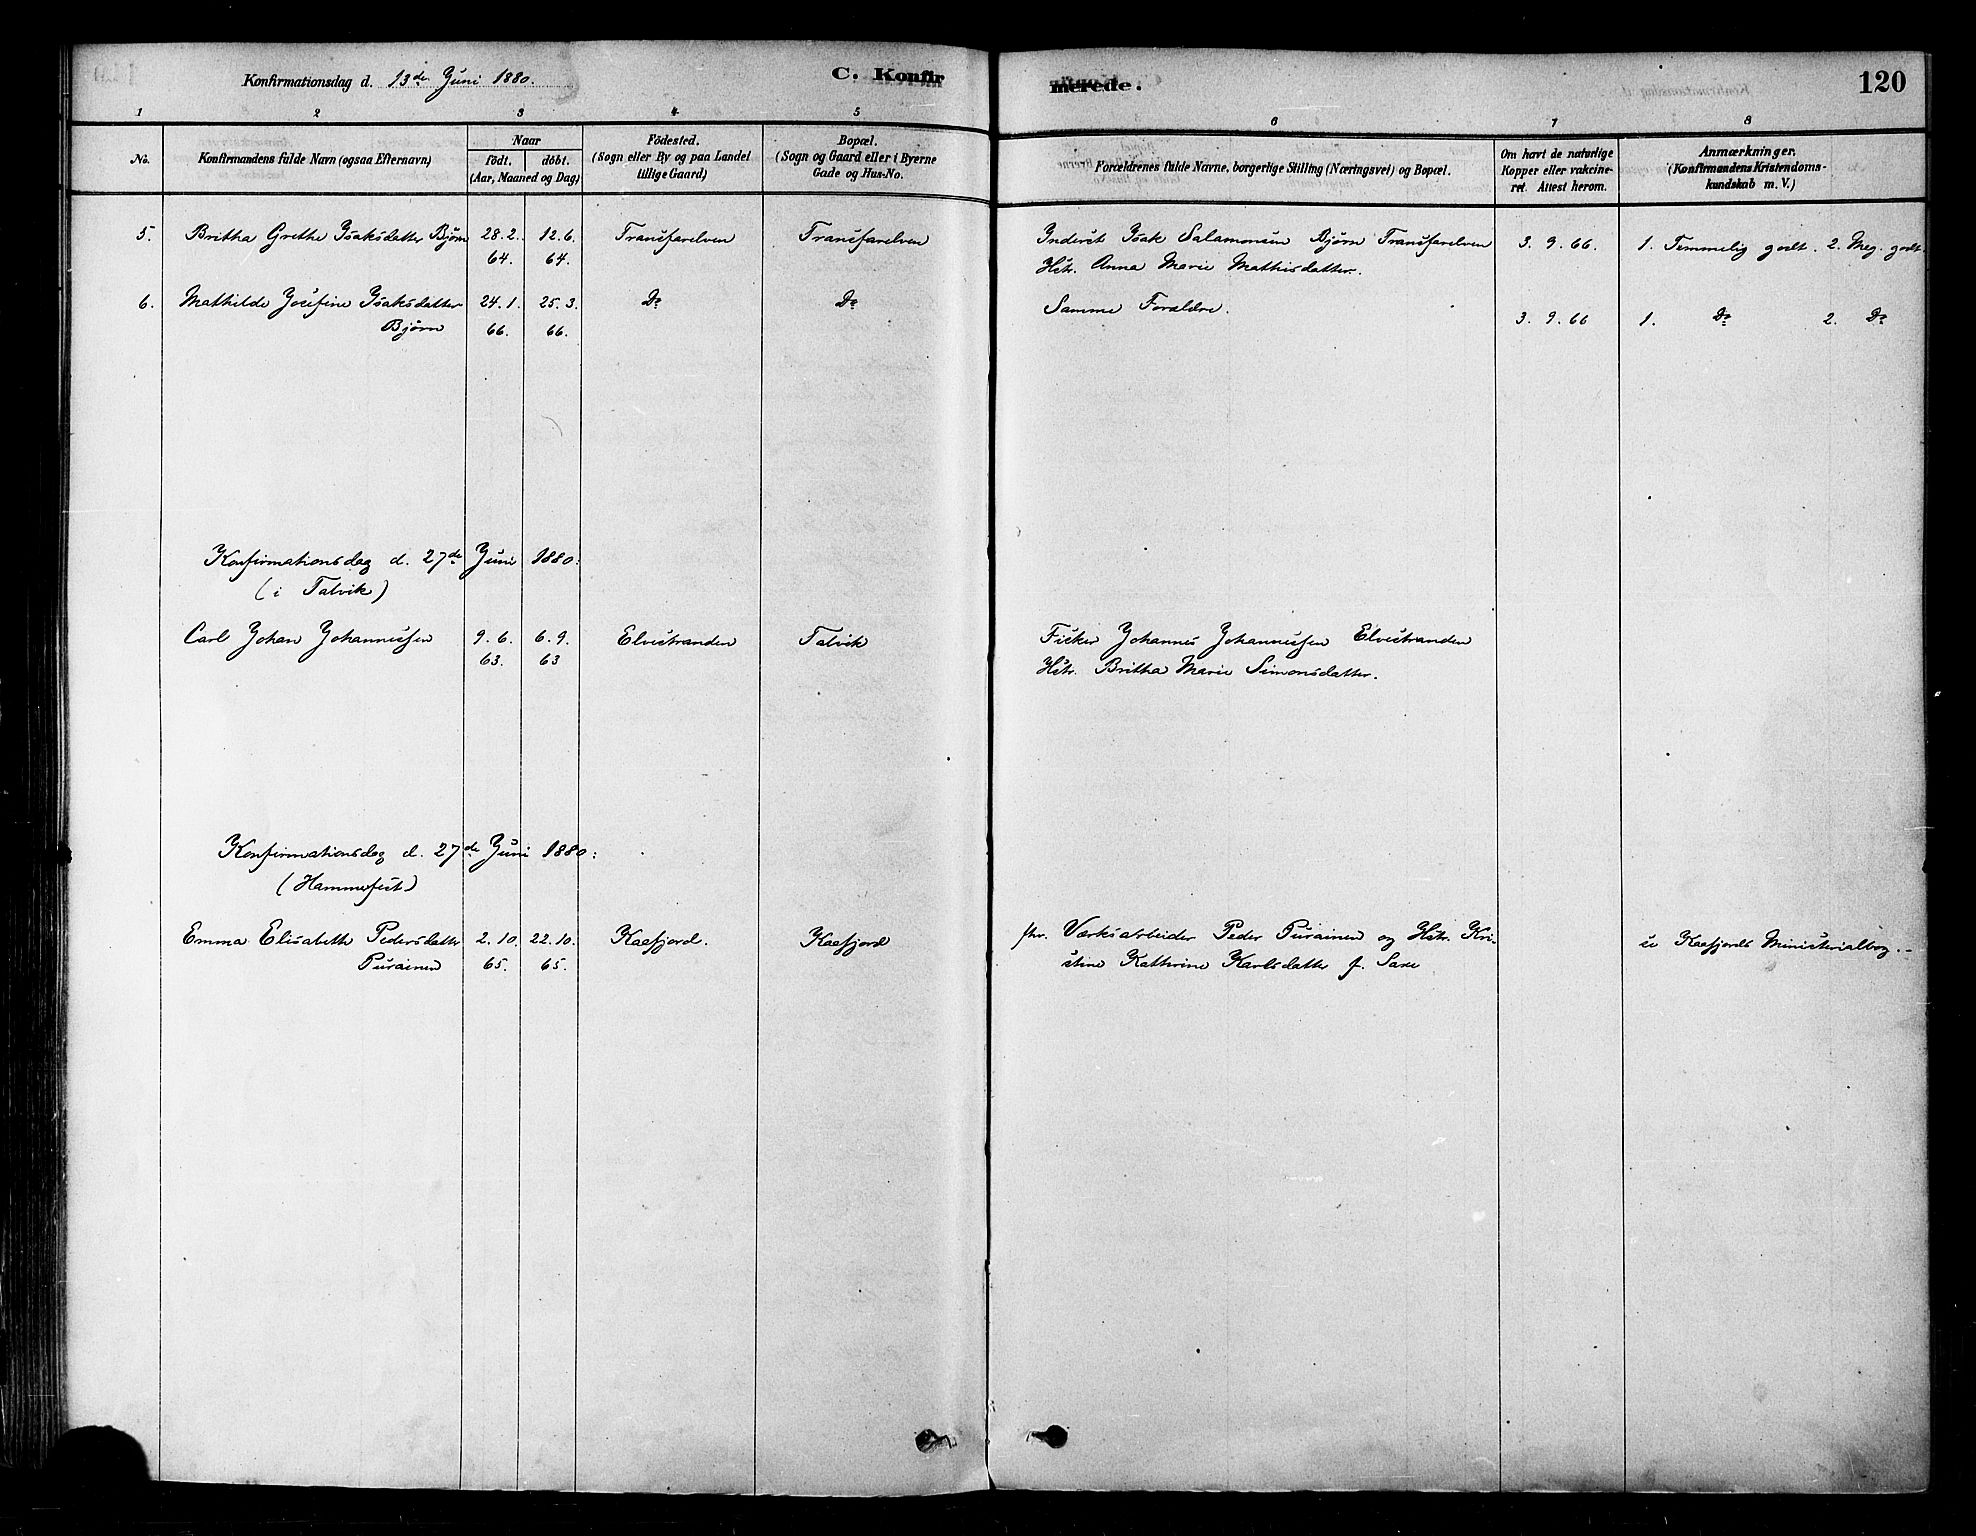 Konfirmationsdag d. 13de Juni 1880.
C. Konfir
merede.
120
1 2 3 4 5 6 7 8
No.
Konfirmandens fulde Navn (ogsaa Efternavn)
Naar
födt. döbt.
(Aar, Maaned og Dag)
Födested.
(Sogn eller By og paa Landet
tillige Gaard)
Bopæl.
(Sogn og Gaard eller i Byerne
Gade og Hus-No.
Forældrenes fulde Navne, borgerlige Stilling (Næringsvei) og Bopæl.
Om havt de naturlige
Kopper eller vakcine-
ret. Attest herom.
Anmærkninger.
(Konfirmandens Kristendoms-
kundskab m. V.)
5. Britha Grethe Isaksdatter Bjørn 28.2. 12.6. Transfarelven Transfarelven Inderst Isak Salamonsen Bjørn Transfarelven 3. 9. 66. 1. Temmelig godt. 2. Meg. godt.
64. 64. Hstr. Anna Marie Mathisdatter.
6. Mathilde Josefine Isaksdatter 24.1. 25.3. Do Do Samme Forældre.
Bjørn 66. 66. 3. 9. 66 1. Do 2. Do
Konfirmationsdag d. 27de Juni 1880:
(i Talvik)
Carl Johan Johannessen 9.6. 6.9. Elvestranden Talvik Fisker Johannes Johannessen Elvestranden
63. 63 Hstr. Britha Marie Simonsdatter.
Konfirmationsdag d. 27de Juni 1880:
(Hammerfest)
Emma Elisabeth Pedersdatter 2.10. 22.10. Kaafjord. Kaafjord fhv. Værksarbeider Peder Purainen og Hstr. Kri-
Purainen 65. 65. stine Kathrine Karlsdatter f. Sare
se Kaafjords Ministerialbog.